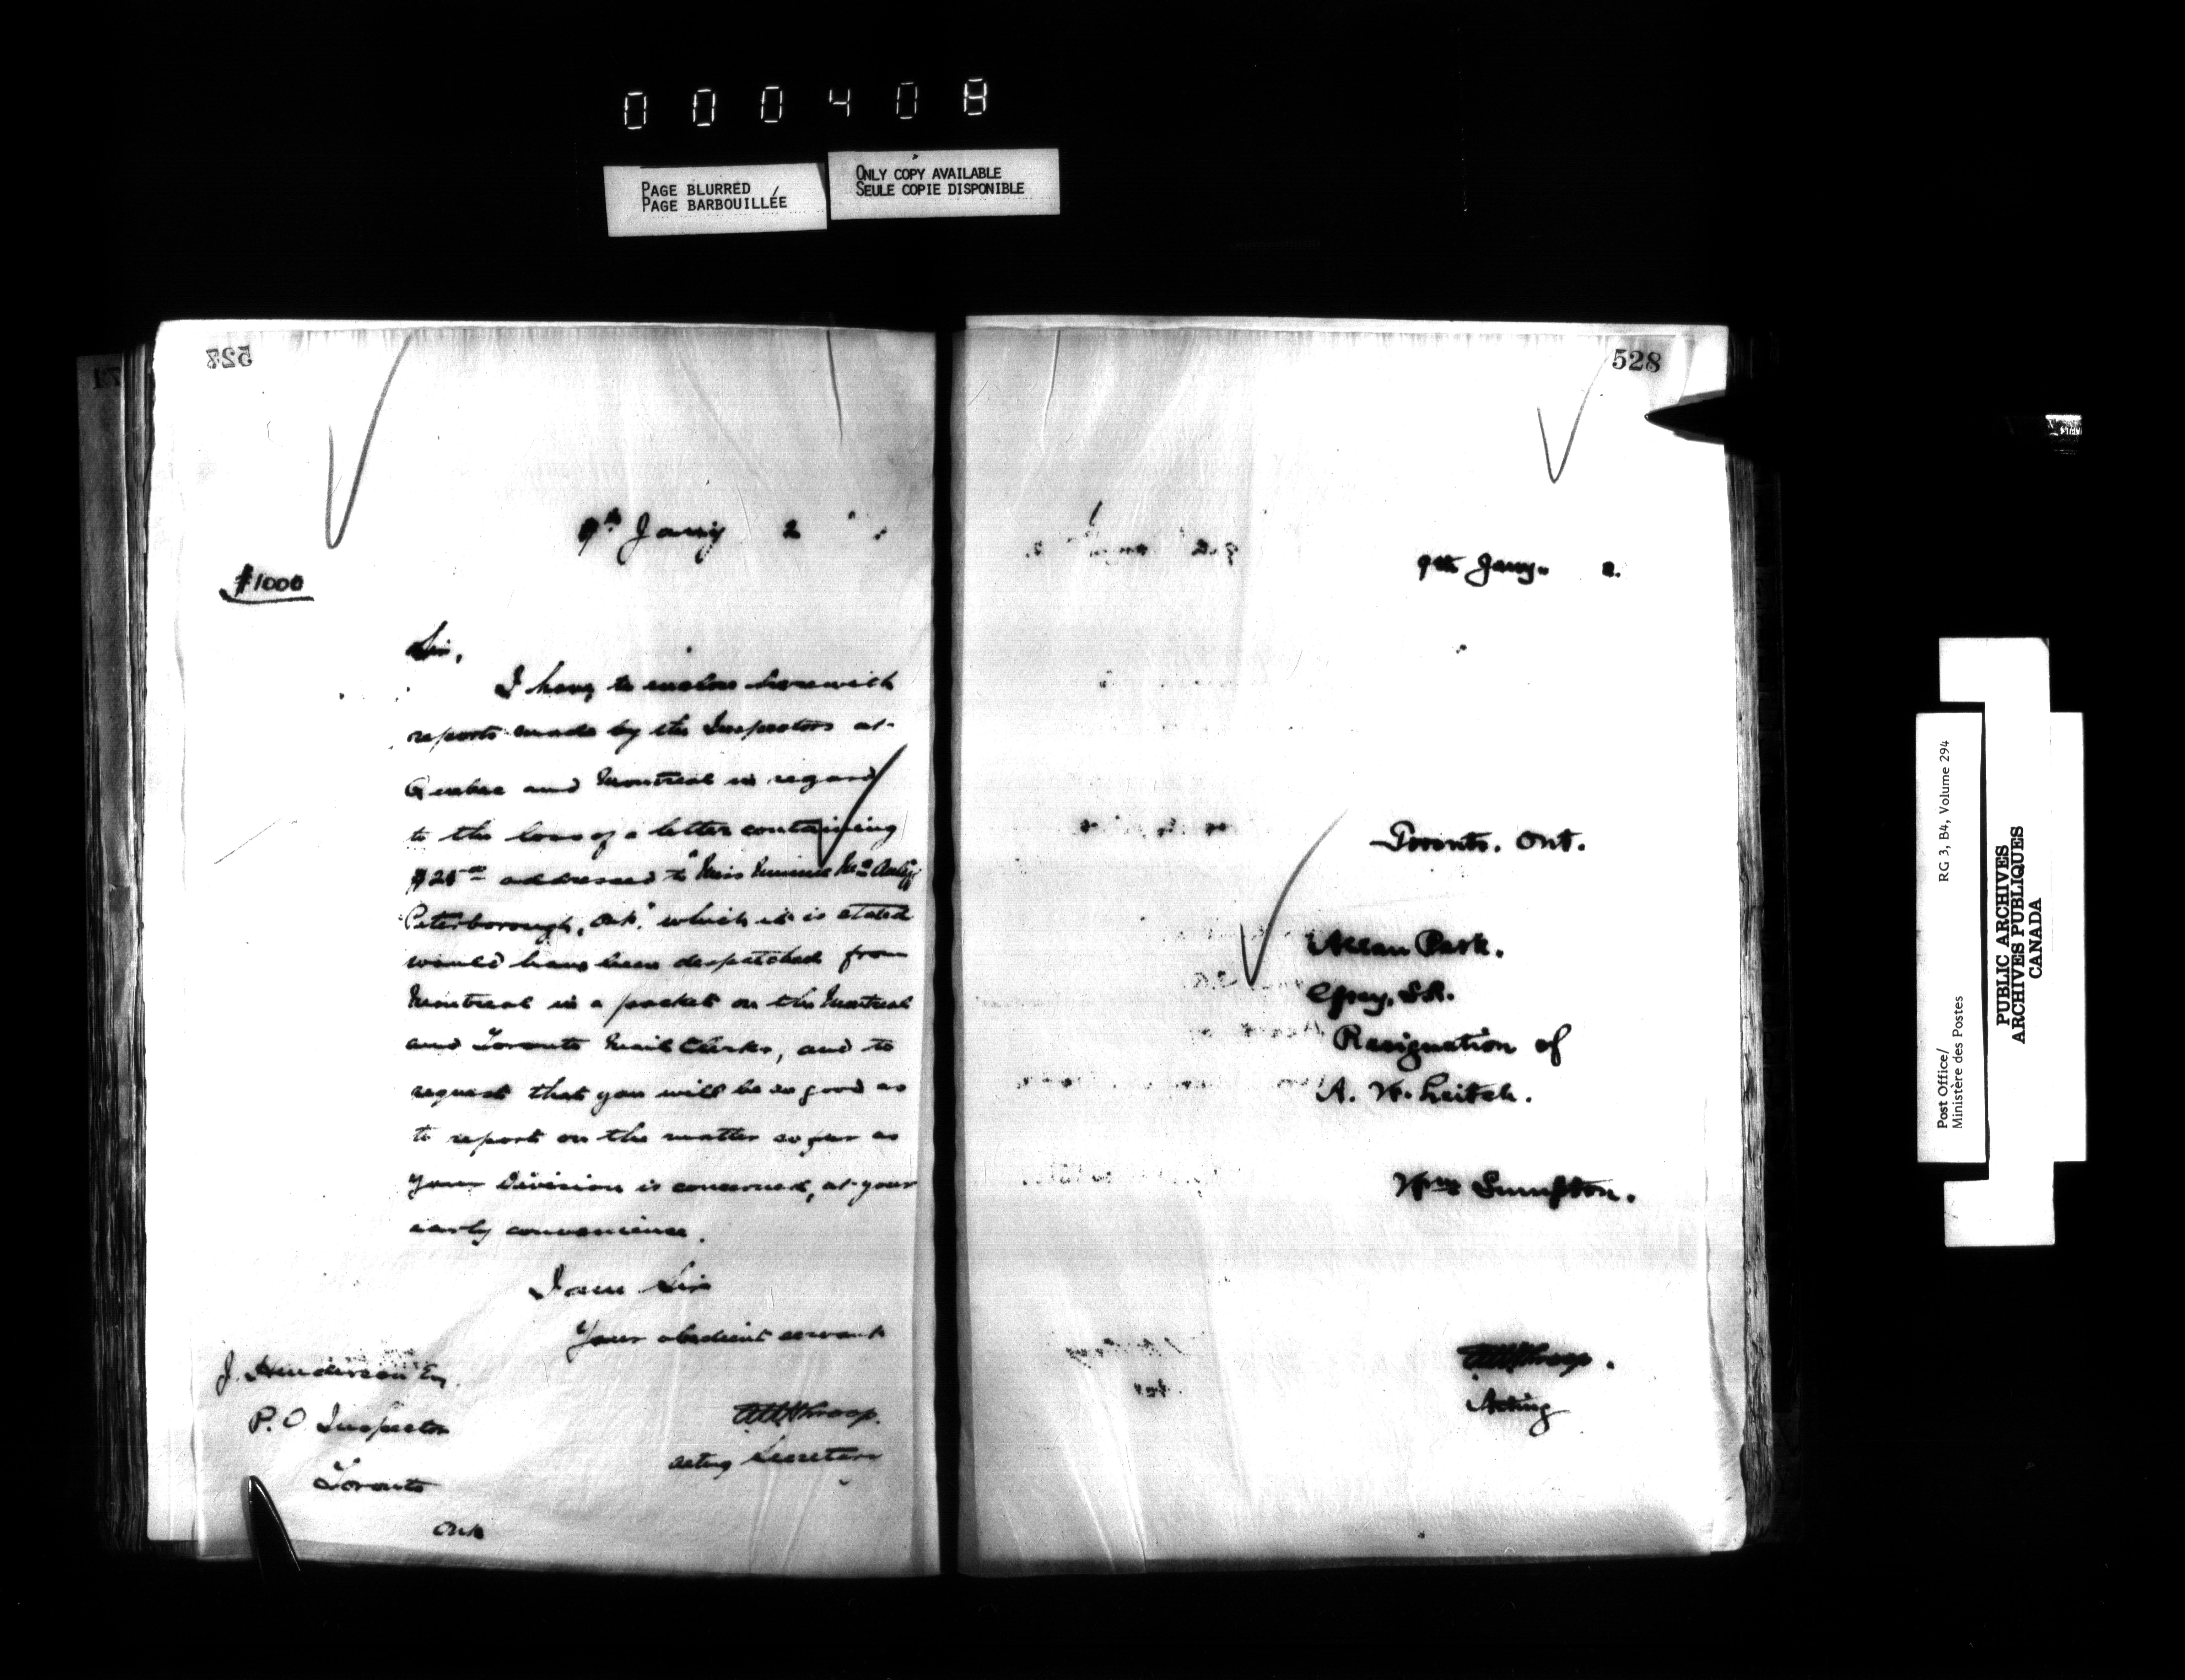 000408
PAGE BLURRED
PAGE BARBOUILLÉE
ONLY COPY AVAILABLE
SEULE COPIE DISPONIBLE
528
9th Jany 2
$1000
Sir,
I have to enclose herewith
reports made by the Inspectors at
Quebec and Montreal in regard
to the loss of a letter containing
addressed to "Miss Minnie
Peterborough, Ont." which it is stated
would have been despatched from
Montreal in a packet on the Montreal
and Toronto Mail Clerks, and to
request that you will be so good as
to report on the matter so far as
your Division is concerned, at your
early convenience.
I am Sir
Your obedient servant
J. Henderson Esq.
P.O Inspector
Toronto
Ont
Acting Secretary
9th Jany. 2.
Toronto. Ont.
Allan Park.
Grey, S.R.
Resignation of
A. W. Leitch.
Wm Sumpton.
Acting
Post Office/
Ministère des Postes
RG 3, B4, Volume 294
PUBLIC ARCHIVES
ARCHIVES PUBLIQUES
CANADA